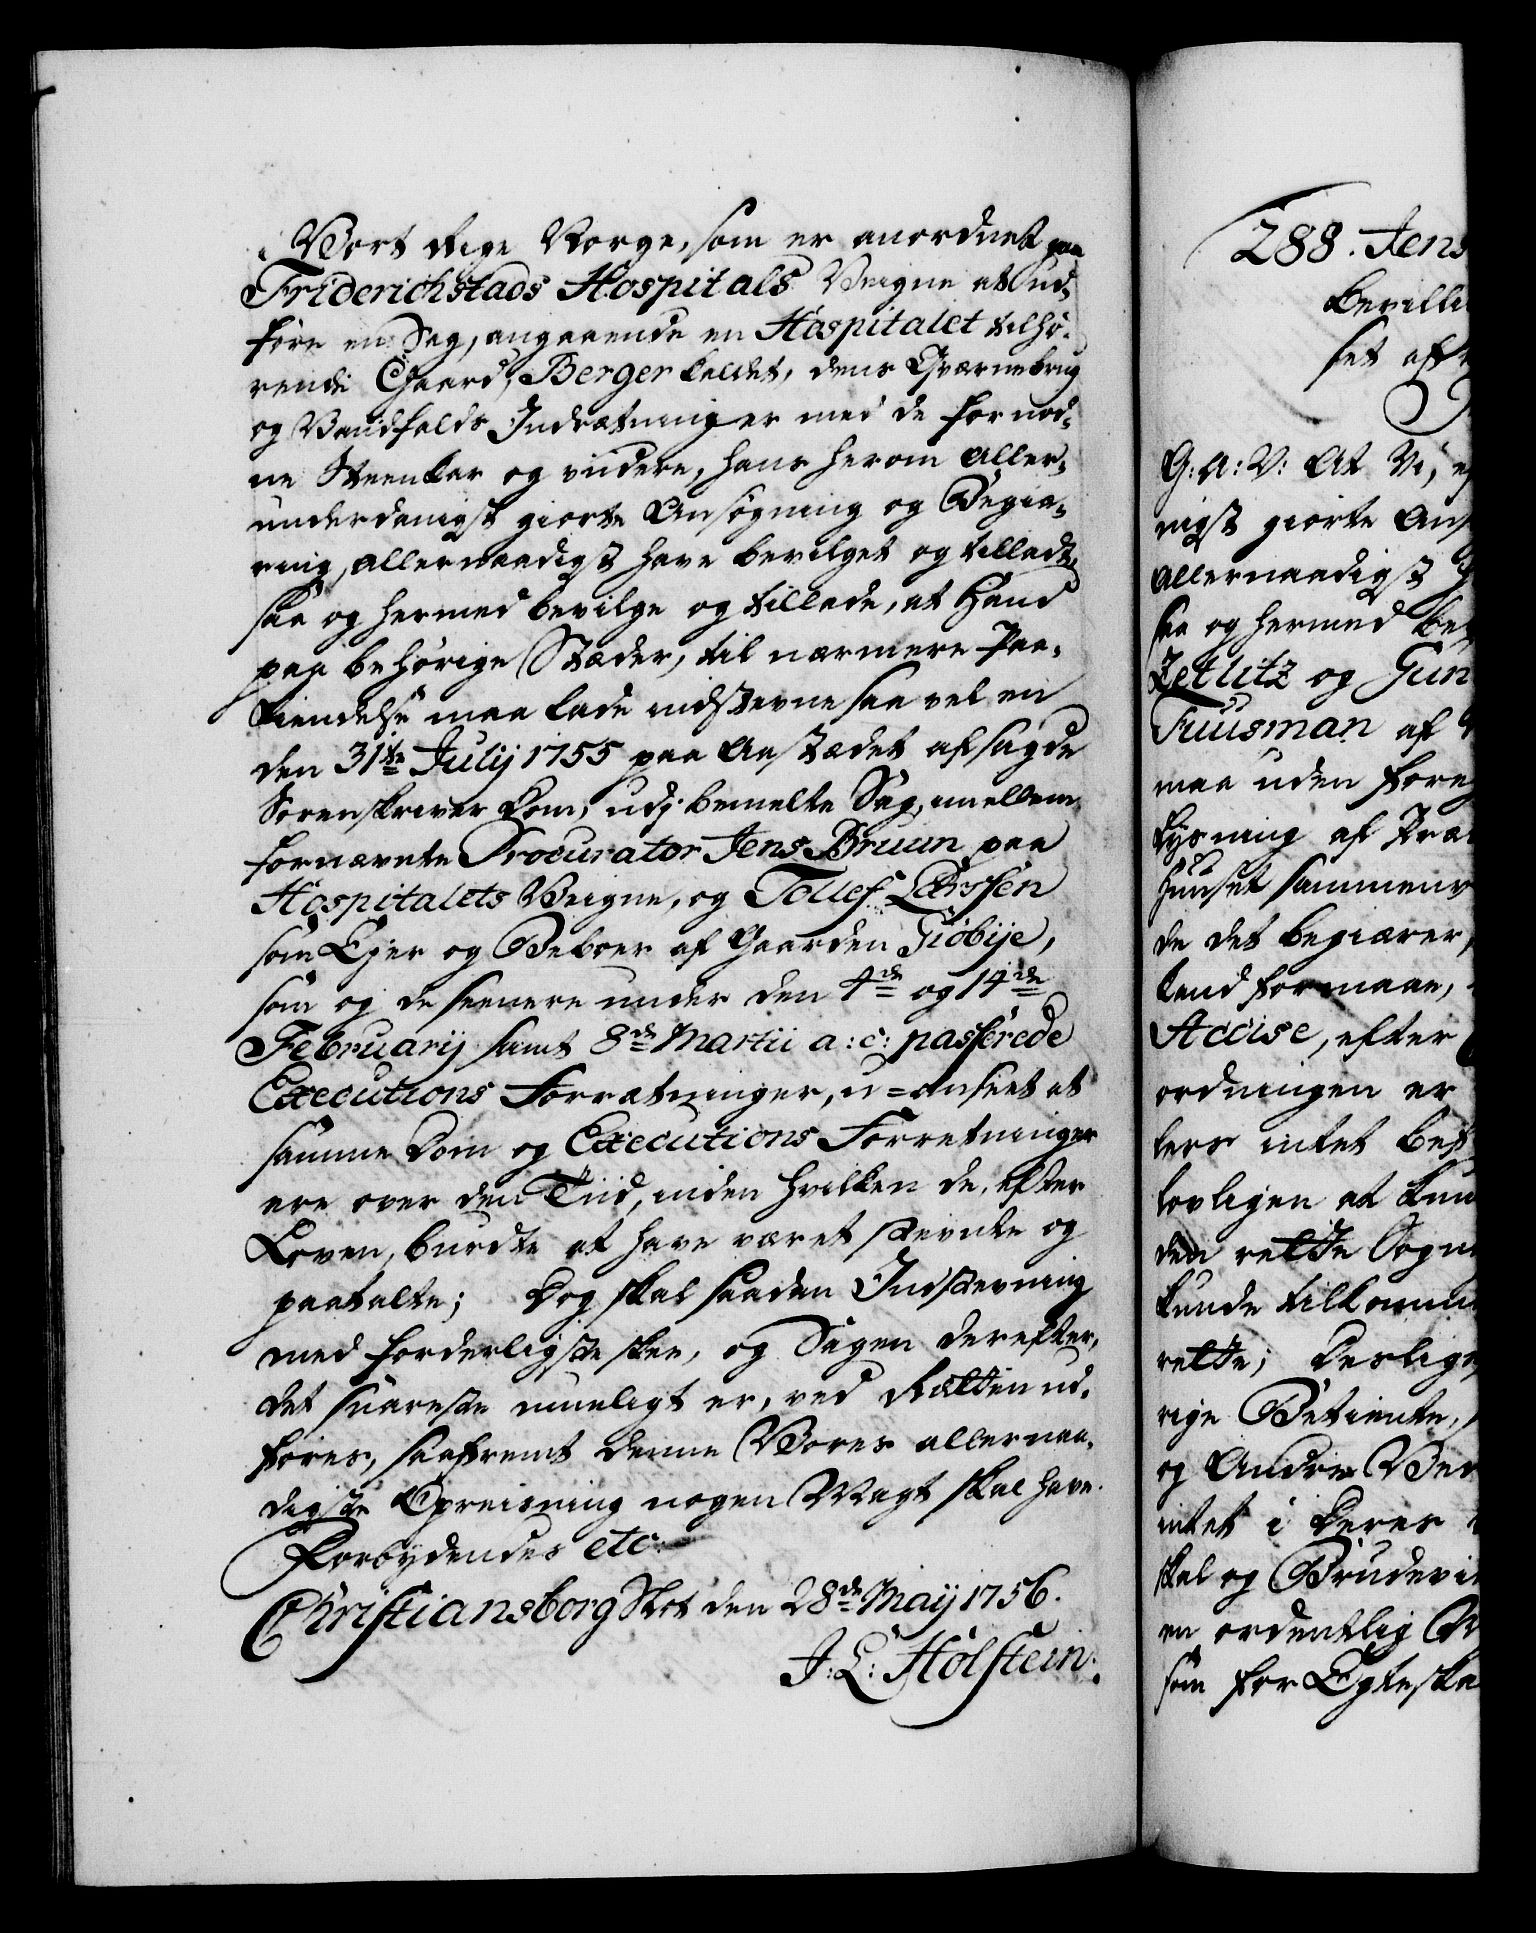 i Vort Rige Norge, som er anordnet paa
Friderichstads Hospitals Veigne at ud-
føre en Sag, angaaende en Hospitalet tilhø-
rende Gaard, Berger kaldet, dens Qværnebrug
og Vandfalds Indrætninger med de fornød-
ne Steenkar og viidere, hans herom aller-
underdanigst giorte Ansøgning og Begiæ-
ring, allernaadigst have bevilget og tilladt,
saa og hermed bevilge og tillade, at Hand
paa behørige Stæder, til nærmere Paa-
kiendelse maa lade indstevne saa vel en
den 31te Julij 1755 paa Aastædet afsagde
Sorenskriver Dom, udj bemelte Sag, imellem
fornævnte Procurator Jens Bruun paa
Hospitalets Veigne, og Tollef Larssen
som Ejer og Beboer af Gaarden Giøbije,
som og de seenere under den 4de og 14de
Februarij samt 8de Martii a: c: passerede
Executions Forrætninger, u=anseet at
samme Dom og Executions Forretninger
ere over den Tiid, inden hvilken de, efter
Loven, burdte at have været stevnte og
paatalte; Dog skal saadan Indstevning
med forderligste skee, og Sagen derefter,
det snareste mueligt er, ved Rætten ud-
føres, saafremt denne Vores allernaa-
digste Opreisning nogen Magt skal have.
Forbydendes etc:
Christiansborg Slot den 28de Maij 1756.
J: L: Holstein:
288. Jens
bevilli
set aff
G: A: V: At Vi, ef
nigst giorte Ans
allernaadigst
saa og hermed be
Zetlitz og Gun
Truusman af
maa uden fore
lysning af Præ
huuset sammenv
de det begiærer,
kand formaae,
Accise, efter
ordningen er
lers intet bef
lovligen at kun
den rette Sogne
kunde tilkomme
rette; Deslige
rige Betiente,
og Andre Ver
intet i Deres
skal og Brudevi
en ordentlig
som for Egteska